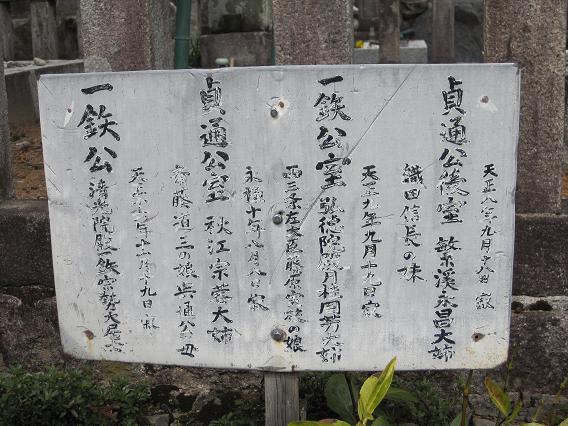 貞通公後室 繁溪永昌大姉
天正八年九月十八日 寂
織田信長の妹
一鉄公室 智徳院殿月桂周芳大姉
天正九年九月十九日 寂
西三条左大臣藤原実枝の娘
貞通公室 秋江宗蓉大姉
永禄十年八月八日 寂
斎藤道三の娘典通公の母
一鉄公 清光院殿一鉄宗勢大居士
天正十六年十一月十九日 寂